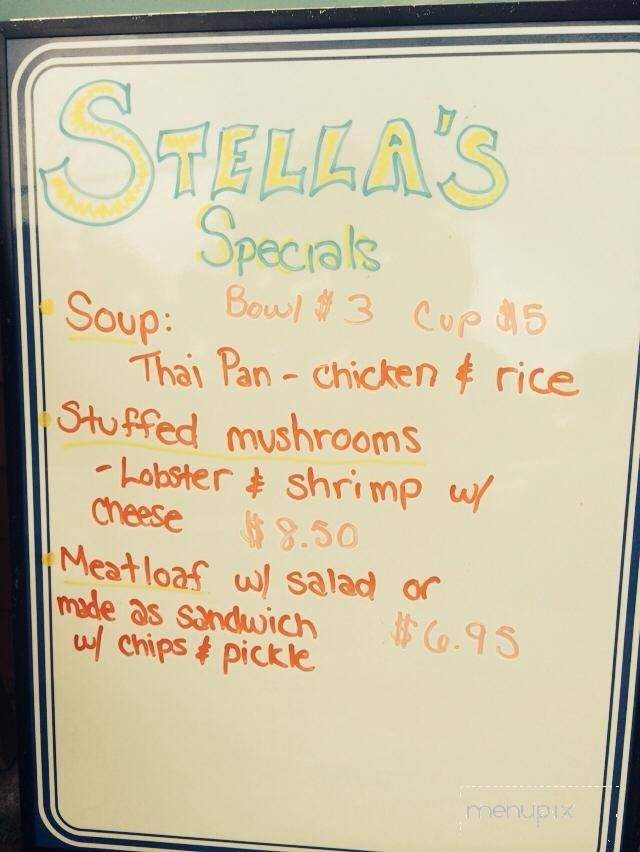 STELLA'S
Specials
Soup: Bowl $3 Cup $5
Thai Pan - chicken & rice
Stuffed mushrooms
- Lobster & shrimp w/
cheese $8.50
Meatloaf w/ salad or
made as sandwich $6.95
w/ chips & pickle
menupix